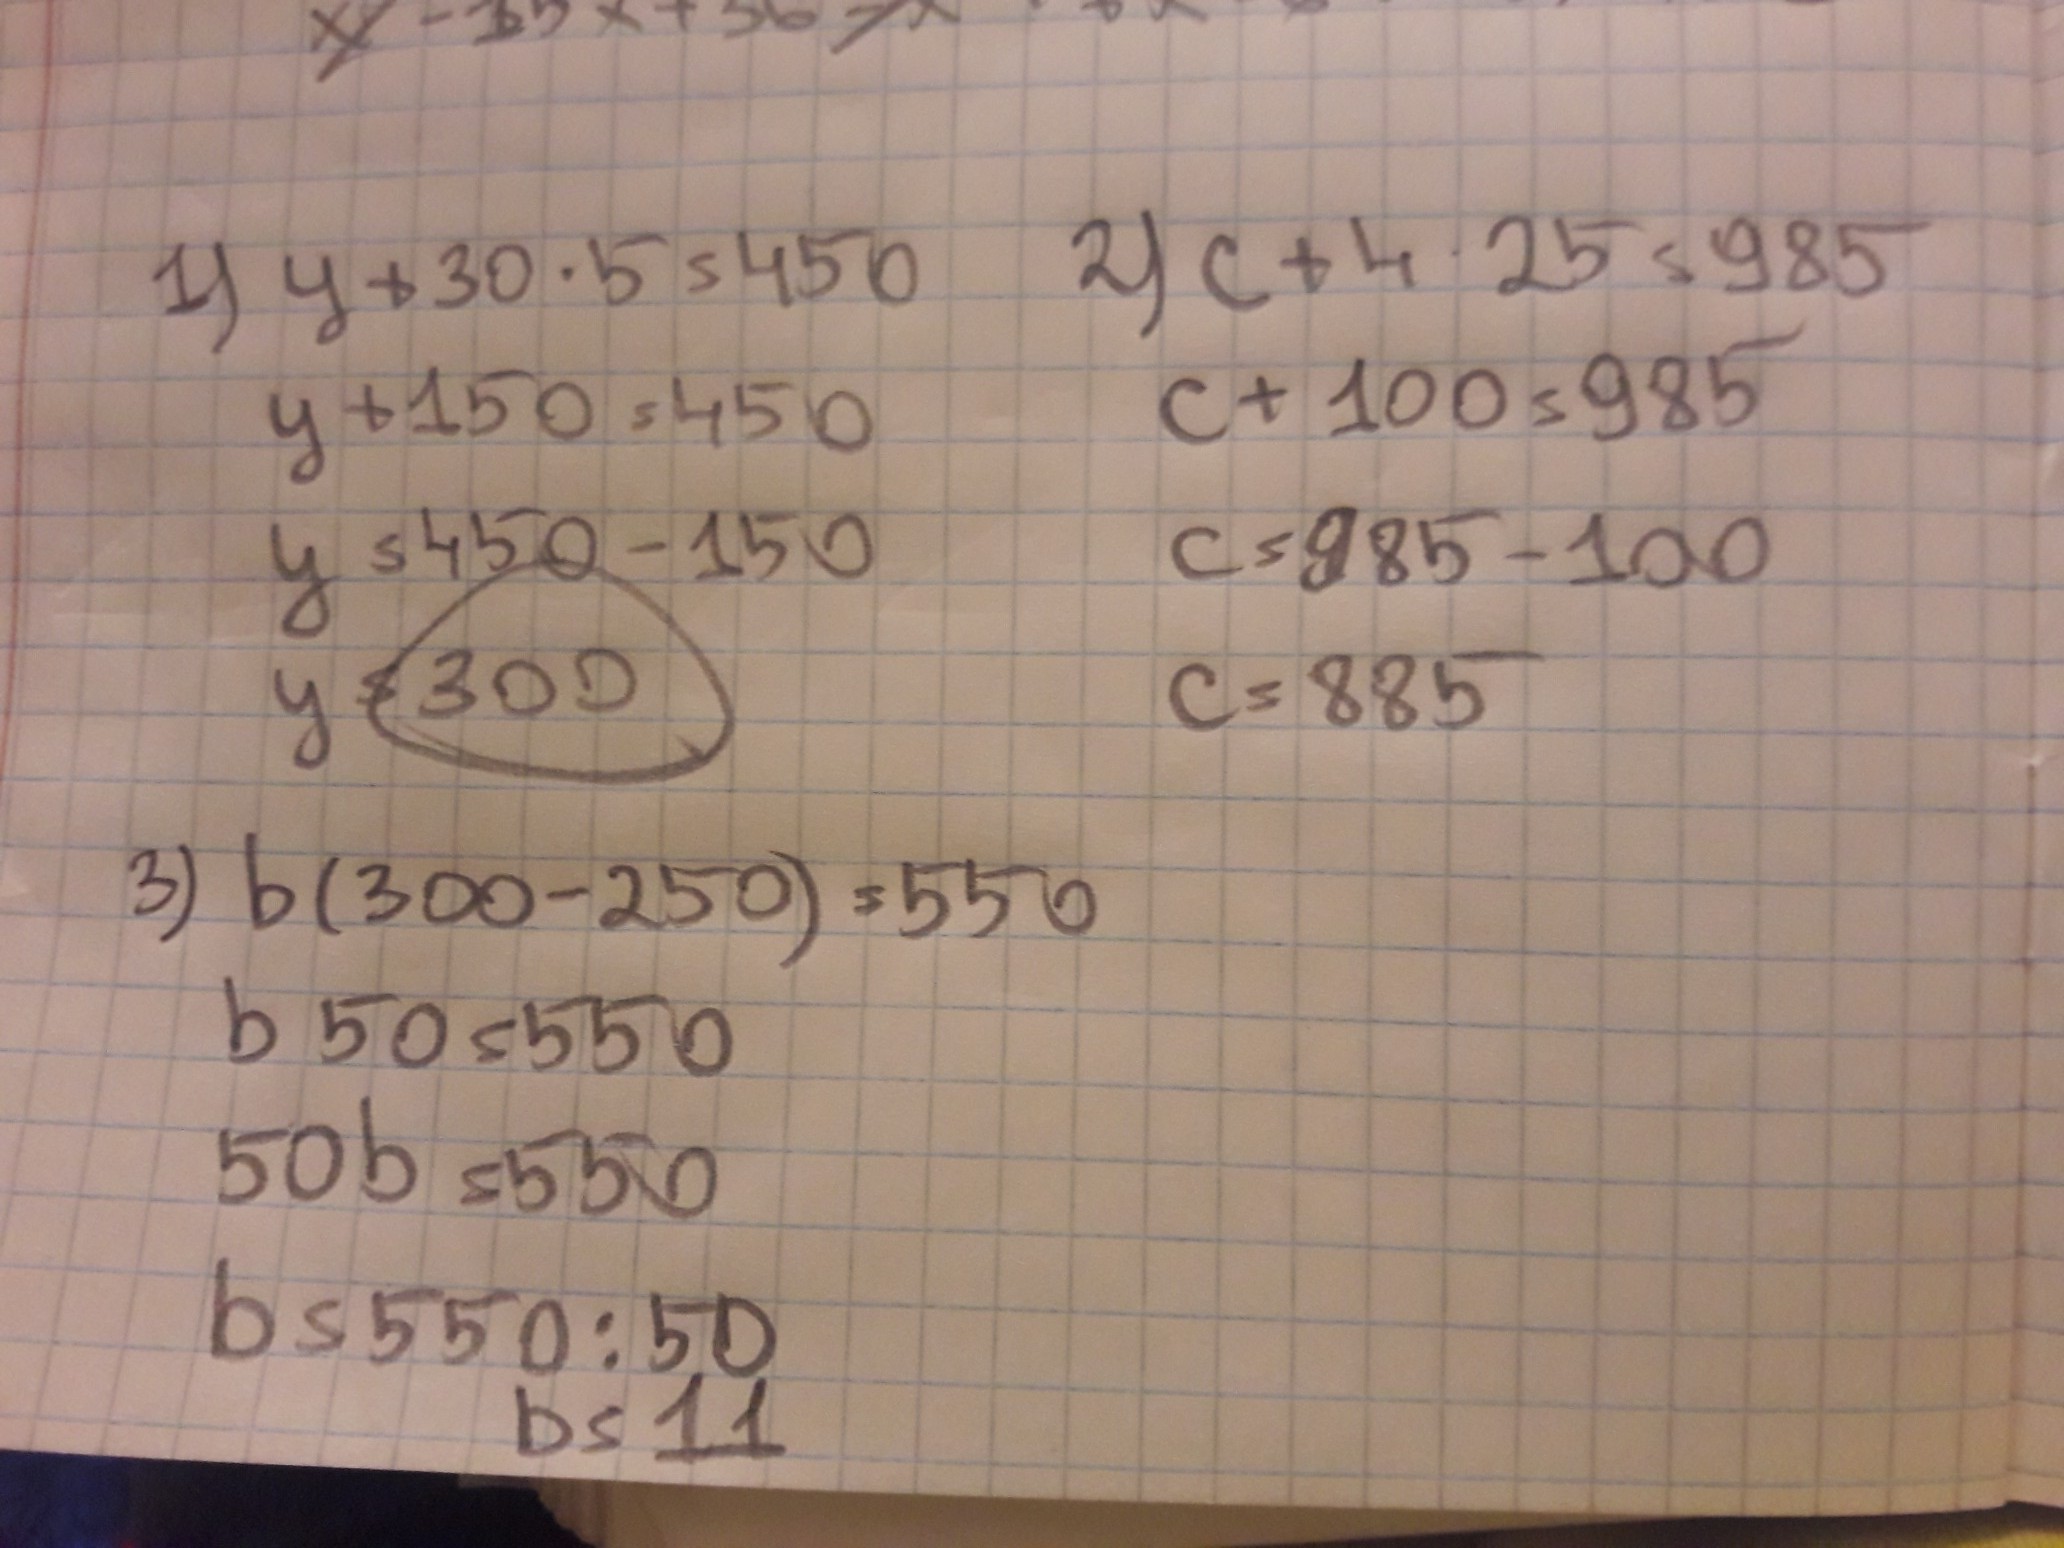 1) y + 30 · 5 = 450
y + 150 = 450
y = 450 - 150
y = 300
2) c + 4 · 25 = 985
c + 100 = 985
c = 985 - 100
c = 885
3) b(300 - 250) = 550
b 50 = 550
50b = 550
b = 550 : 50
b = 11